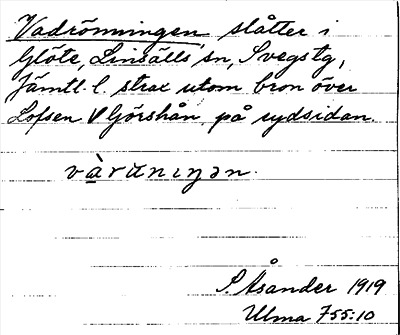 Vadrönningen slåtter i
Glöte, Linsälls sn, Svegs tg,
Jämtl. l. strax utom bron över
Lofsen V Görshån på sydsidan.
vàrønıŋən.
S. Åsander 1919
Ulma 755:10